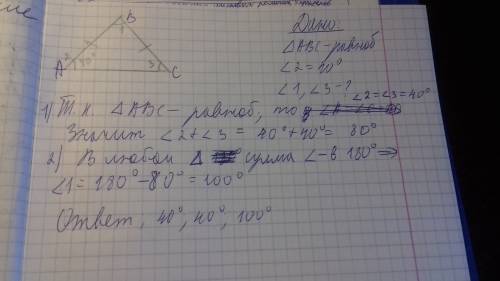 Дано:
B
1
△ABC – равноб
∠2 = 40°
∠1, ∠3 – ?
A 2 40° 3 C
1) Т. к. △ABC – равноб, то ∠2 = ∠3 = 40°
Значит ∠2 + ∠3 = 40° + 40° = 80°
2) В любом △ сумма ∠ – в 180° ⇒
∠1 = 180° – 80° = 100°
Ответ, 40°, 40°, 100°